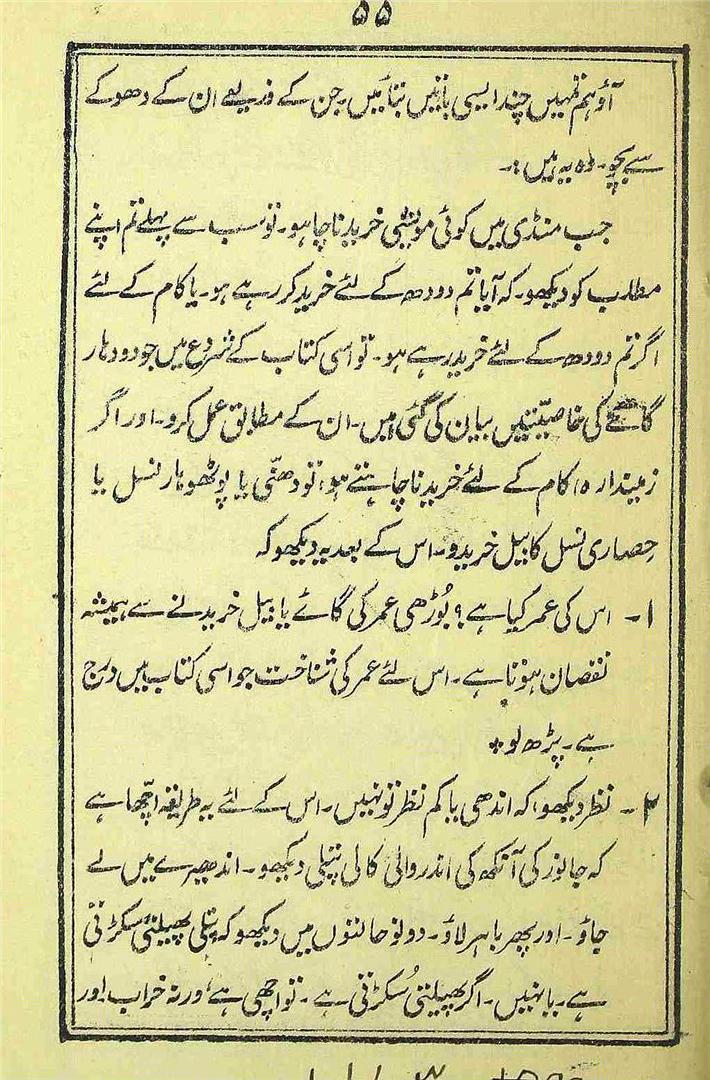 ۵۵
آؤ ہم تمہیں چند ایسی باتیں بتائیں۔ جن کے ذریعے ان کے دھوکے
سے بچو۔ وہ یہ ہیں:۔
جب منڈی میں کوئی مویشی خریدنا چاہو۔ تو سب سے پہلے تم اپنے
مطلب کو دیکھو۔ کہ آیا تم دودھ کے لئے خرید کر رہے ہو۔ یا کام کے لئے
اگر تم دودھ کے لئے خرید رہے ہو۔ تو اسی کتاب کے شروع میں جو دودھار
گائے کی خاصیّتیں بیان کی گئی ہیں۔ ان کے مطابق عمل کرو۔ اور اگر
زمیندارہ کام کے لئے خریدنا چاہتے ہو، تو دھنّی یا پوٹھوہار نسل یا
حصاری نسل کا بیل خریدو۔ اس کے بعد یہ دیکھو کہ
۱۔ اس کی عمر کیا ہے؟ بُوڑھی عمر کی گائے یا بیل خریدنے سے ہمیشہ
نقصان ہوتا ہے۔ اس لئے عمر کی شناخت جو اسی کتاب میں درج
ہے۔ پڑھ لو٭
۲۔ نظر دیکھو، کہ اندھی یا کم نظر تو نہیں۔ اس کے لئے یہ طریقہ اچّھا ہے
کہ جانور کی آنکھ کی اندر والی کالی پتلی دیکھو۔ اندھیرے میں لے
جاؤ۔ اور پھر باہر لاؤ۔ دونو حالتوں میں دیکھو کہ پتلی پھیلتی سکڑتی
ہے۔ یا نہیں۔ اگر پھیلتی سُکڑتی ہے۔ تو اچھی ہے، ورنہ خراب اور